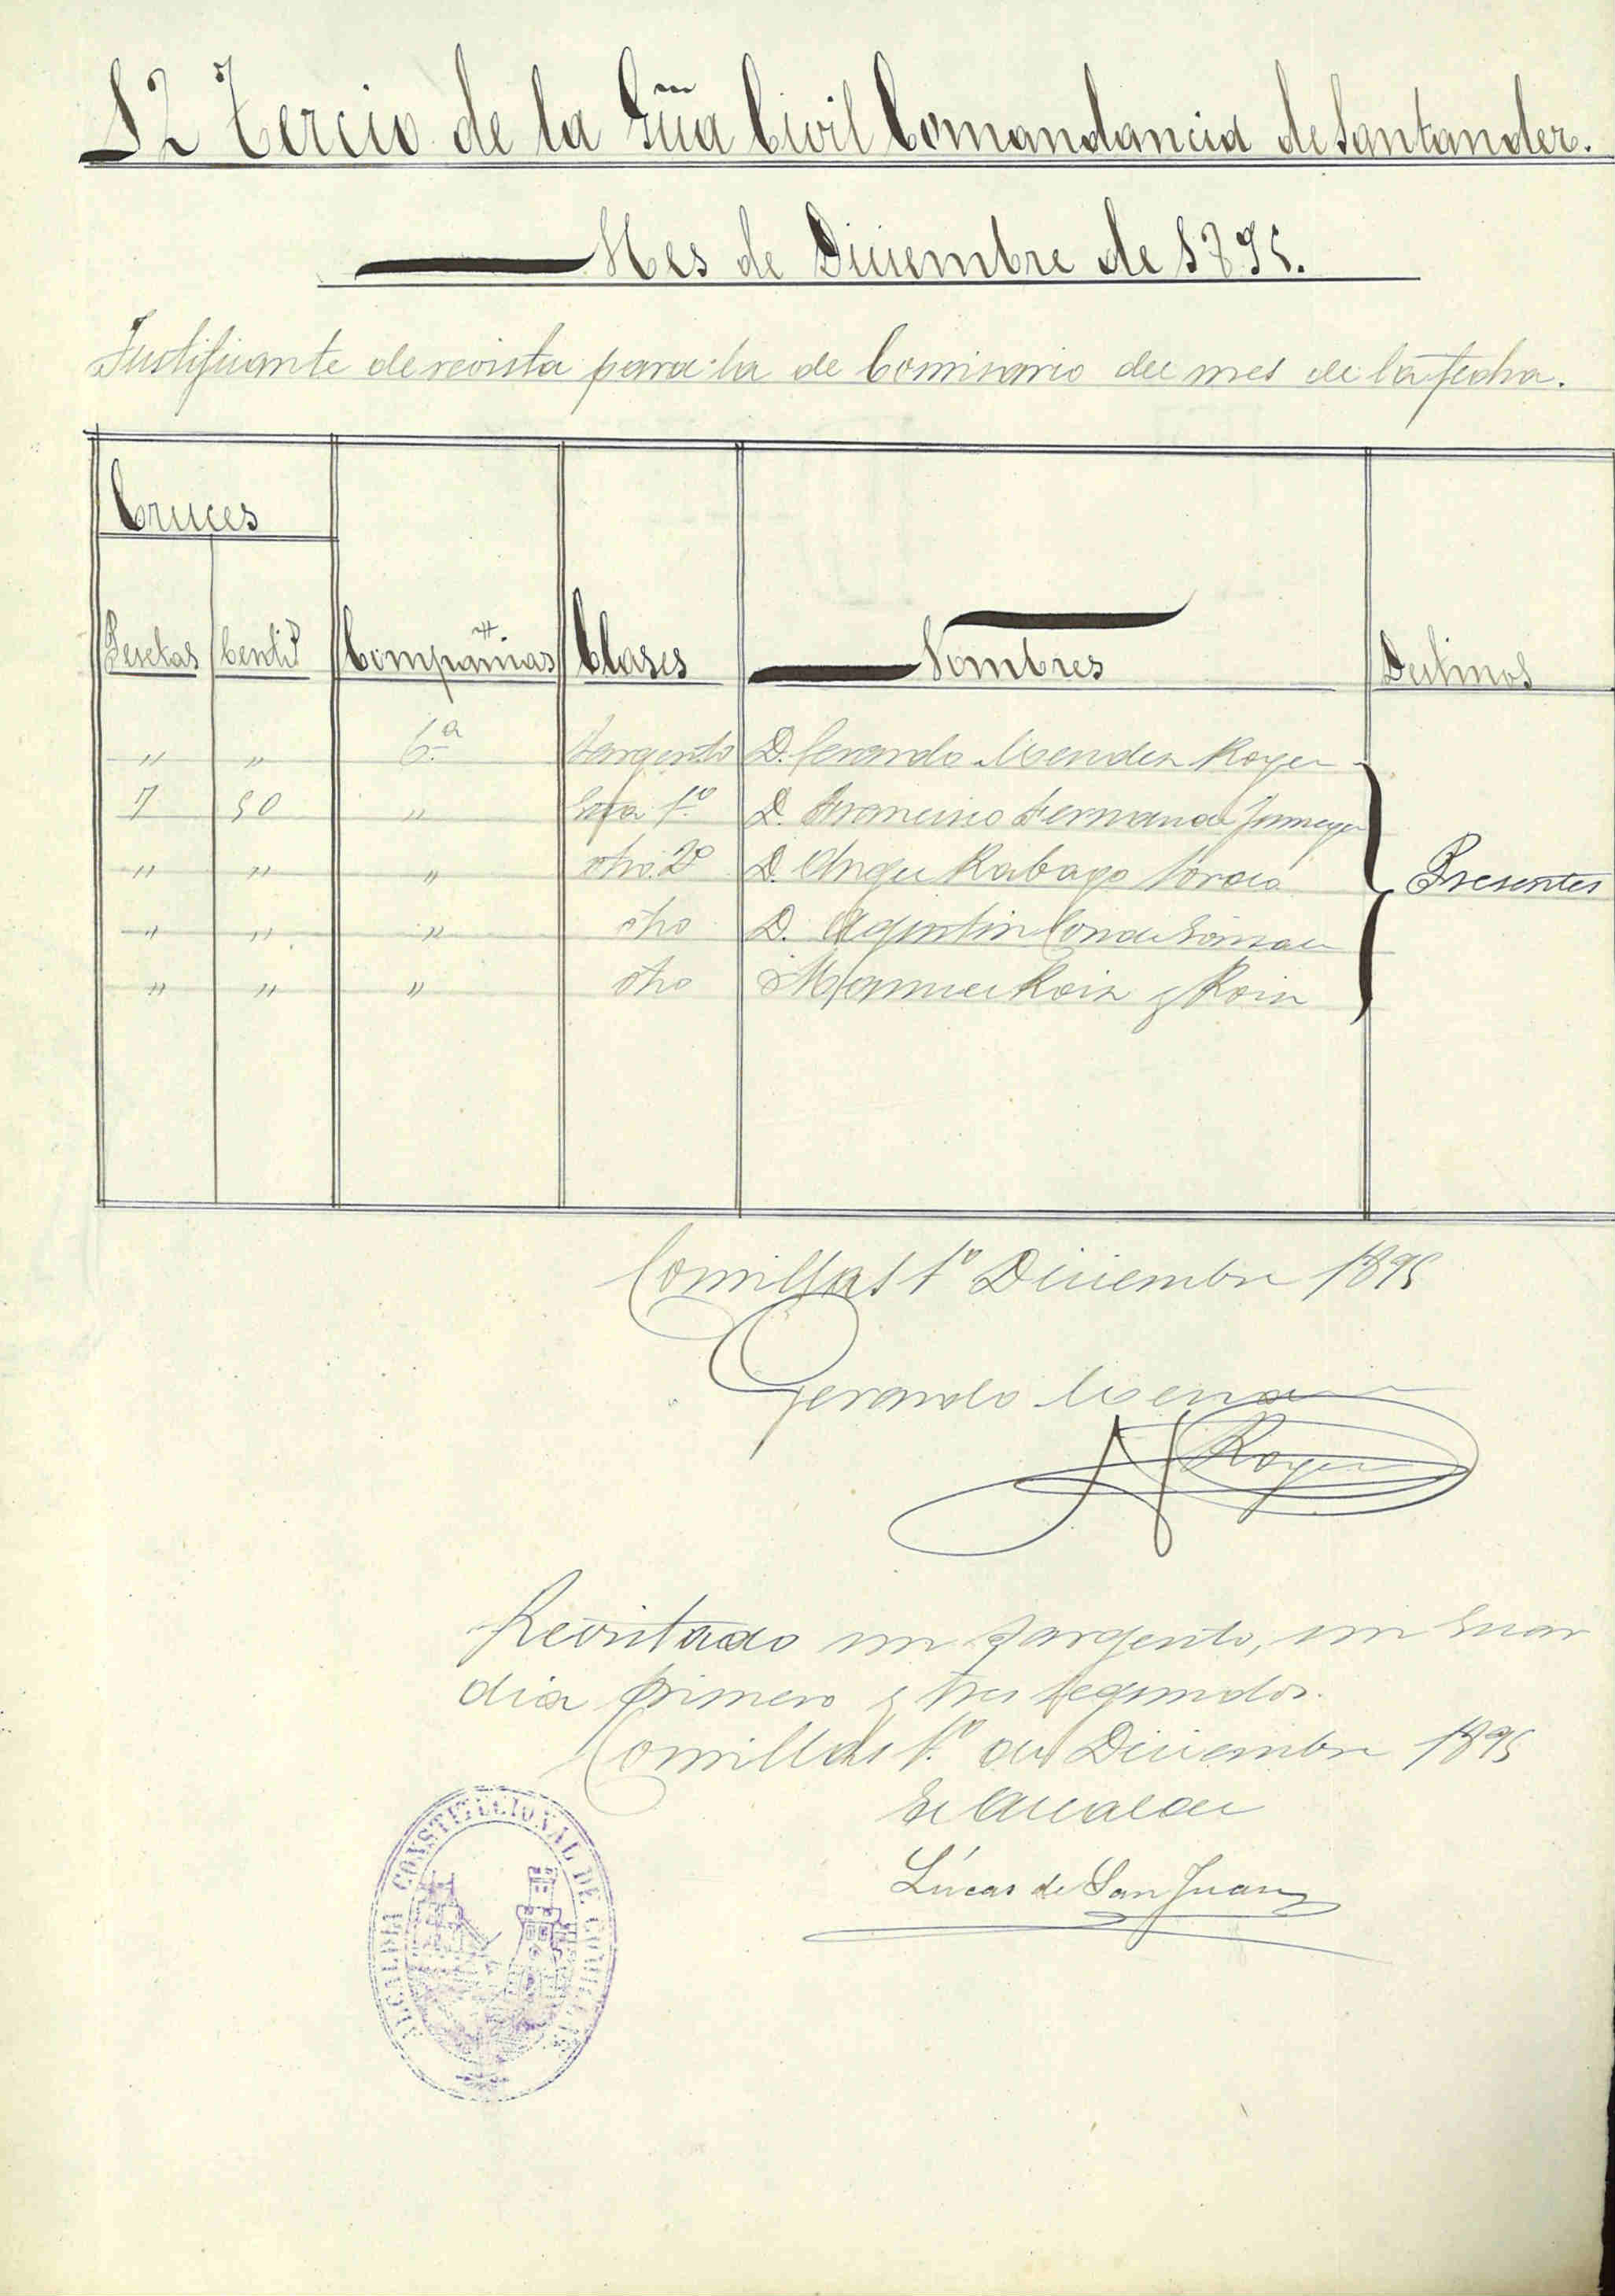 12 Tercio de la Gũa Civil Comandancia de Santander.
Mes de Diciembre de 1895.
Justificante de revista para la de Comisario del mes de la fecha.
Cruces
Pesetas Centi.s Compañias Clases Nombres Destinos
" " 6.a Sargento D. Gerardo Mendez Royer
7 50 " Gũa 1.º D. Francisco Fernandez
" " " otro 2º D. Angel Rabago
" " " otro D. Agustin Conde
" " " otro Manuel Roiz y Roiz
Presentes
Comillas 1.º Diciembre 1895
Gerardo Mendez
Royer
Revistado un Sargento, un Guar
dia primero y tres segundos.
Comillas 1.º de Diciembre 1895
El Alcalde
Lúcas de San Juan
ALCALDIA CONSTITUCIONAL DE COMILLAS